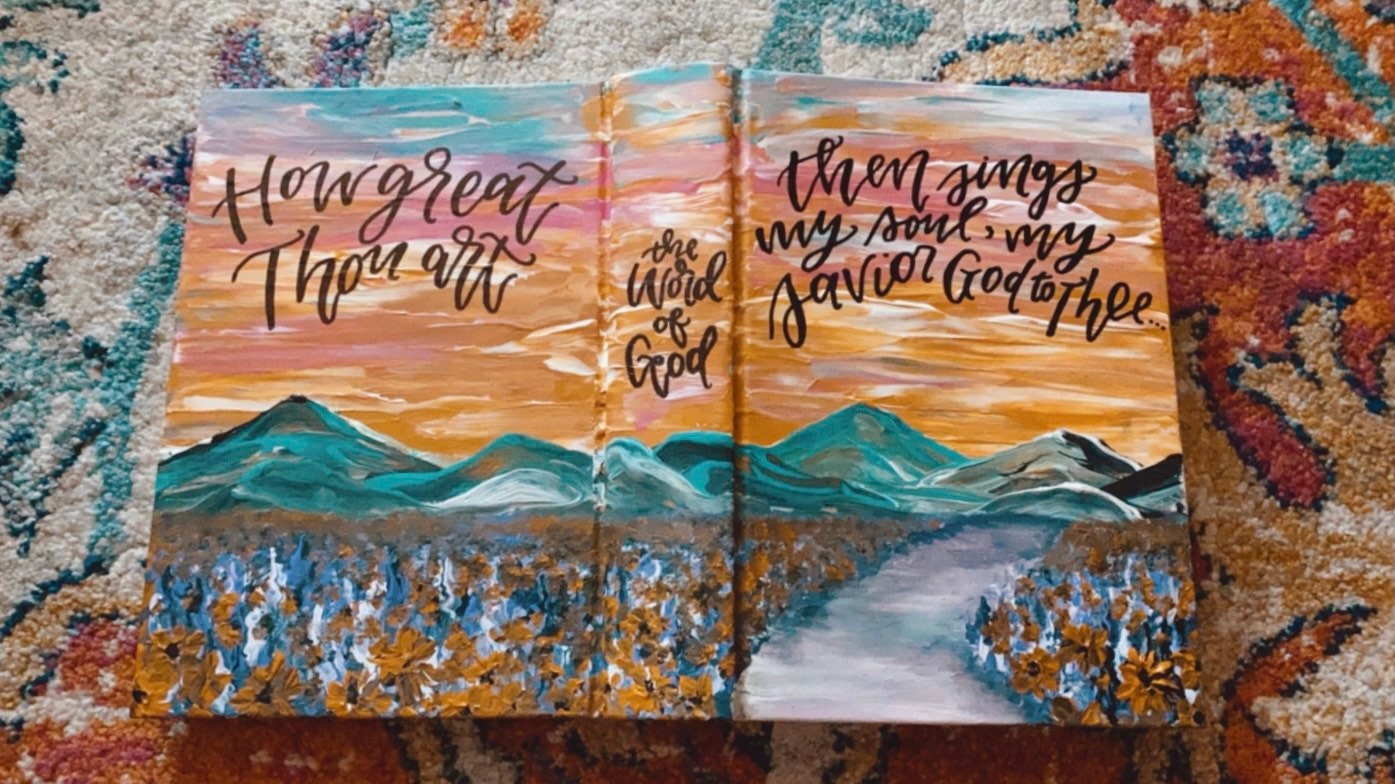 How great
Thou art
the
Word
of
God
then sings
my soul, my
savior God to Thee...